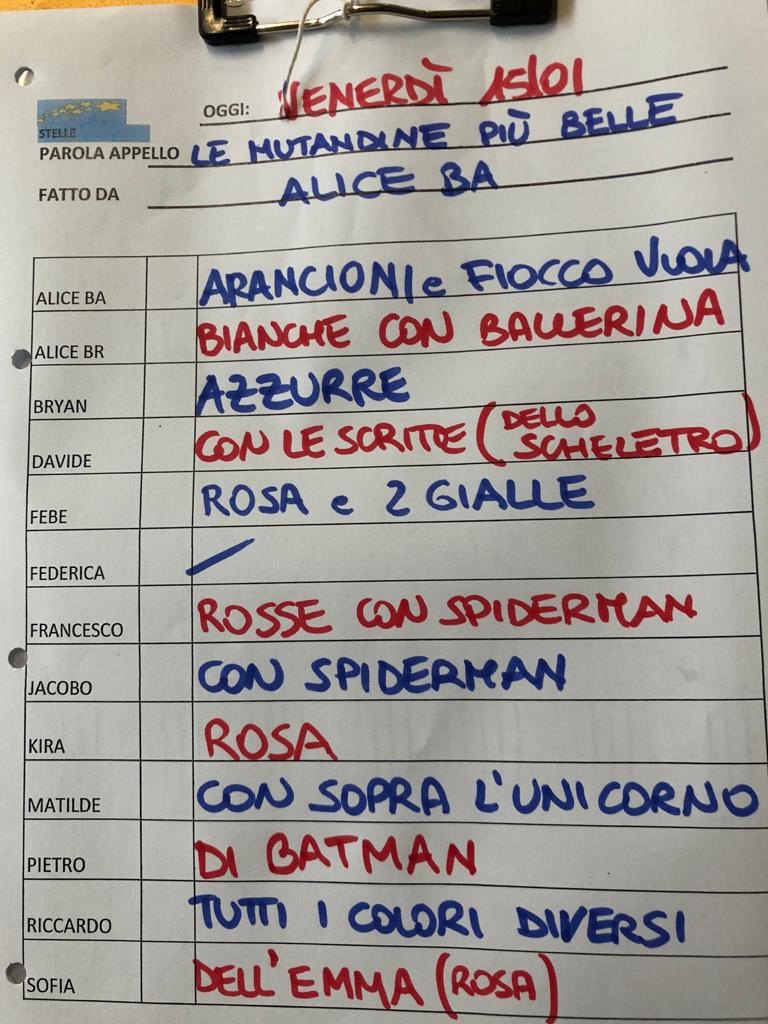 OGGI: VENERDÌ 15/01
STELLE
PAROLA APPELLO LE MUTANDINE PIÙ BELLE
FATTO DA ALICE BA
ALICE BA ARANCIONI e FIOCCO VIOLA
ALICE BR BIANCHE CON BALLERINA
BRYAN AZZURRE
DAVIDE CON LE SCRITTE (DELLO
SCHELETRO)
FEBE ROSA e 2 GIALLE
FEDERICA /
FRANCESCO ROSSE CON SPIDERMAN
JACOBO CON SPIDERMAN
KIRA ROSA
MATILDE CON SOPRA L'UNICORNO
PIETRO DI BATMAN
RICCARDO TUTTI I COLORI DIVERSI
SOFIA DELL'EMMA (ROSA)